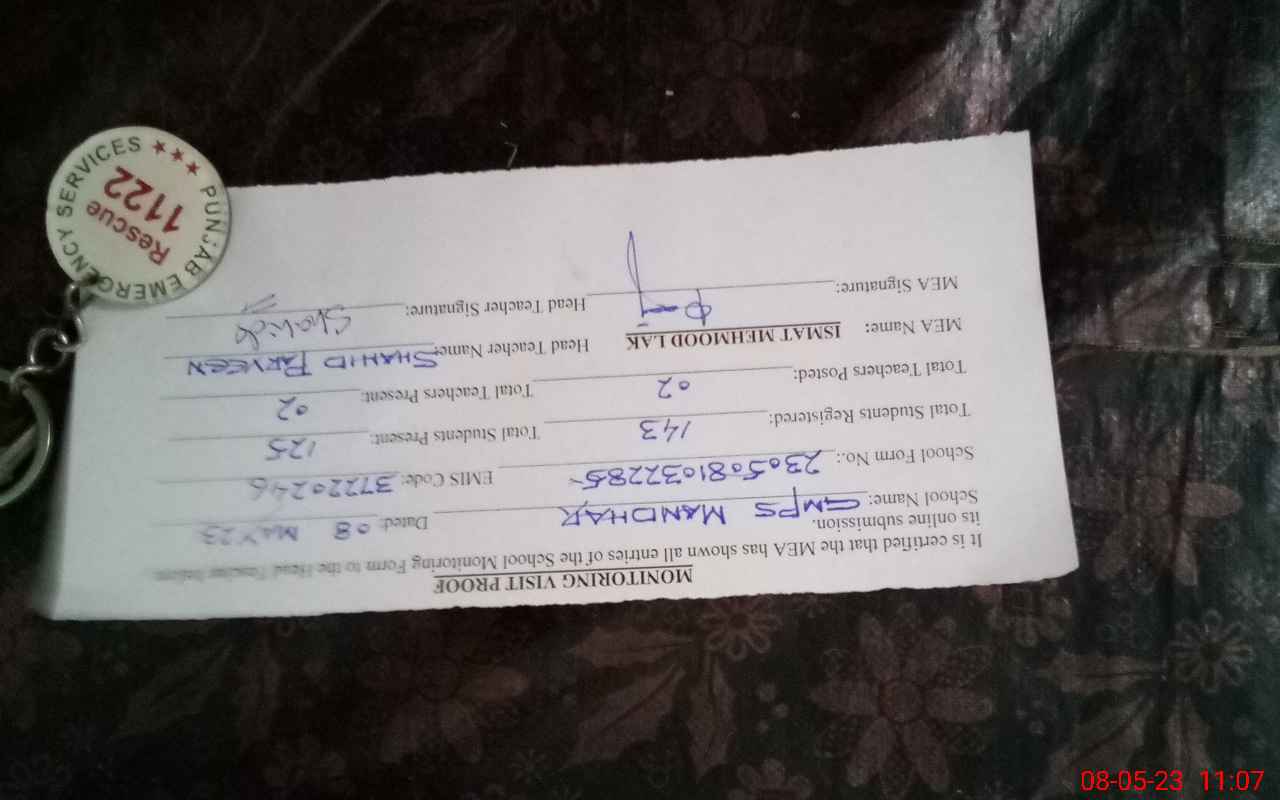 MONITORING VISIT PROOF
It is certified that the MEA has shown all entries of the School Monitoring Form to the Head Teacher before
its online submission.
School Name: GMPS MANDHAR Dated: 08 MAY 23
School Form No.: 2305081032285 EMIS Code: 37220246
Total Students Registered: 143 Total Students Present: 125
Total Teachers Posted: 02 Total Teachers Present: 02
MEA Name: ISMAT MEHMOOD LAK Head Teacher Name: SHAHID PARVEEN
MEA Signature: Head Teacher Signature: Shahid
PUNJAB EMERGENCY SERVICES ★★★
Rescue
1122
08-05-23 11:07